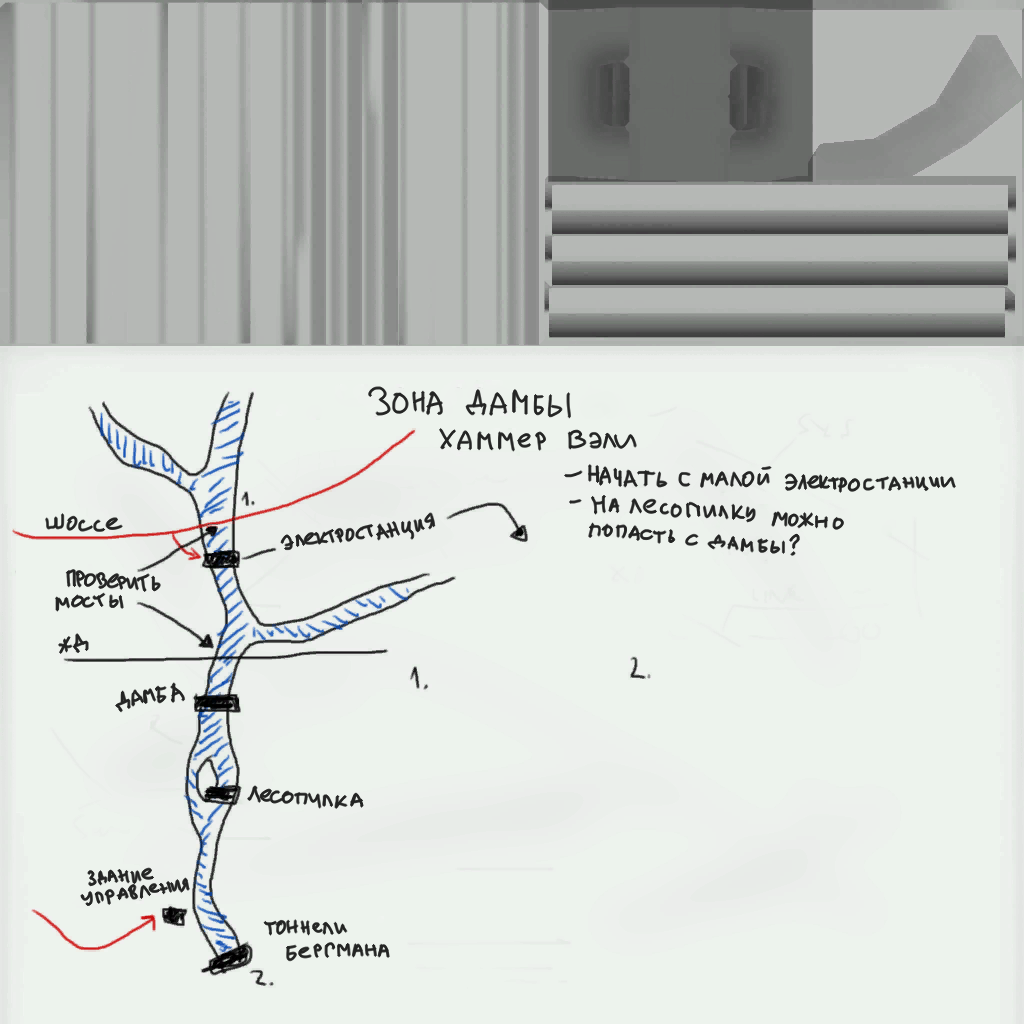 ЗОНА ДАМБЫ
ХАММЕР ВЭЛЛ
– НАЧАТЬ С МАЛОЙ ЭЛЕКТРОСТАНЦИИ
– НА ЛЕСОПИЛКУ МОЖНО
ПОПАСТЬ С ДАМБЫ?
1.
ШОССЕ
ЭЛЕКТРОСТАНЦИЯ
ПРОВЕРИТЬ
МОСТЫ
ЖД
1.
2.
ДАМБА
ЛЕСОПИЛКА
ЗДАНИЕ
УПРАВЛЕНИЯ
ТОННЕЛИ
БЕРГМАНА
2.